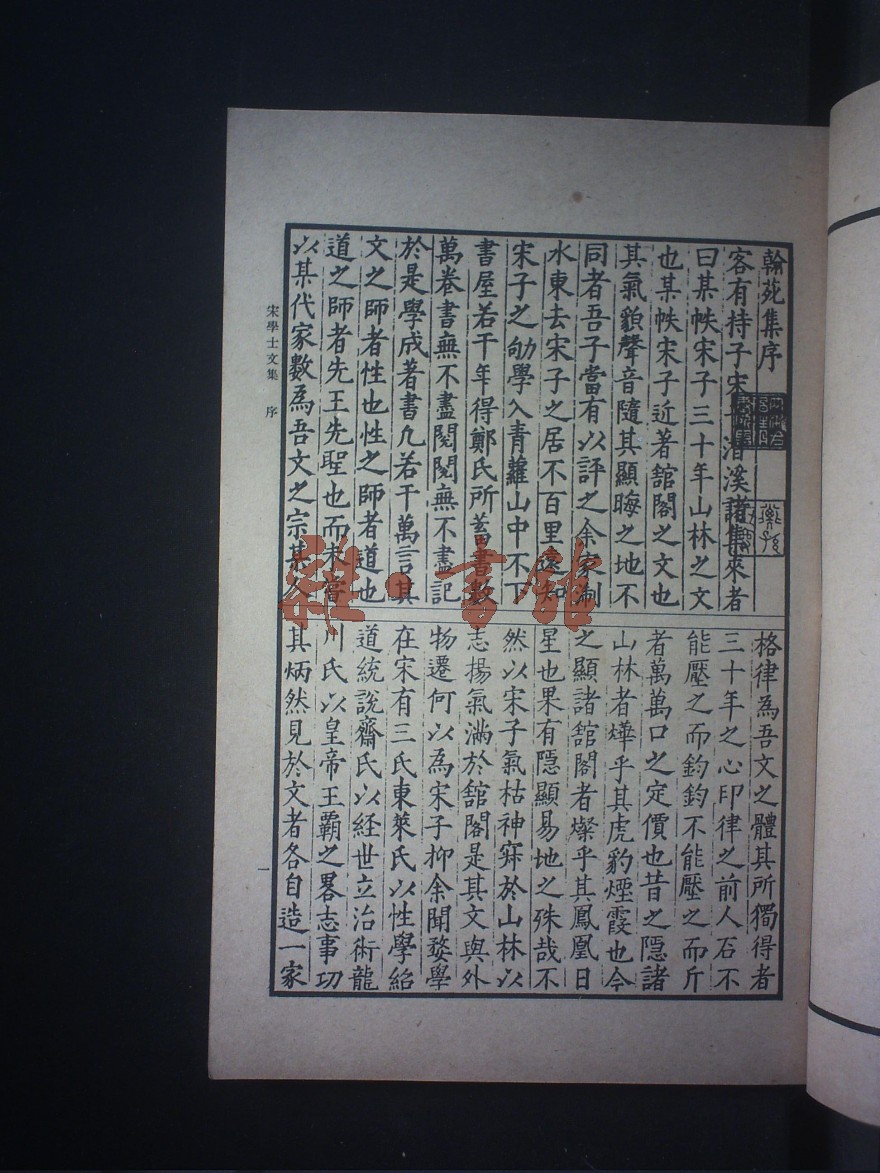 翰苑集序
客有持子宋子潛溪諸集來者
曰某帙宋子三十年山林之文
也某帙宋子近著舘閣之文也
其氣貌聲音隨其顯晦之地不
同者吾子當有以評之余家淛
水東去宋子之居不百里遠知
宋子之劬學入青蘿山中不下
書屋若干年得鄭氏所蓄書數
萬卷書無不盡閱閱無不盡記
於是學成著書凢若干萬言其
文之師者性也性之師者道也
道之師者先王先聖也而未嘗
以某代家數為吾文之宗某人
格律為吾文之體其所獨得者
三十年之心印律之前人石不
能壓之而鈞鈞不能壓之而斤
者萬萬口之定價也昔之隱諸
山林者燁乎其虎豹煙霞也今
之顯諸舘閣者燦乎其鳳凰日
星也果有隱顯易地之殊哉不
然以宋子氣枯神寂於山林以
志揚氣滿於舘閣是其文與外
物遷何以為宋子抑余聞婺學
在宋有三氏東萊氏以性學紹
道統說齋氏以經世立治術龍
川氏以皇帝王霸之畧志事功
其炳然見於文者各自造一家
宋學士文集 序
一
雜·書館